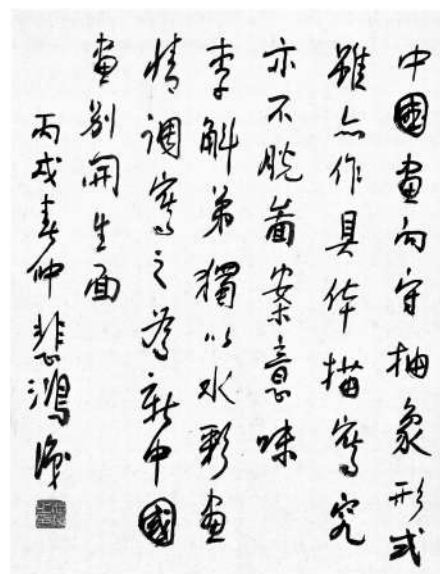 中國畫向守抽象形式
雖亦作具体描寫究
亦不脱啚案意味
李斛弟獨以水彩畫
情調寫之為新中國
畫别開生面
丙戌春仲悲鴻識